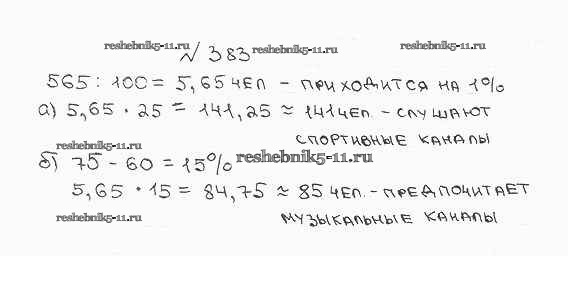 reshebnik5-11.ru
reshebnik5-11.ru
reshebnik5-11.ru
№ 383
565 : 100 = 5,65 чел - приходится на 1%
а) 5,65 · 25 = 141,25 ≈ 141 чел. - слушают
спортивные каналы
reshebnik5-11.ru
б) 75 - 60 = 15%
reshebnik5-11.ru
5,65 · 15 = 84,75 ≈ 85 чел. - предпочитает
музыкальные каналы
reshebnik5-11.ru